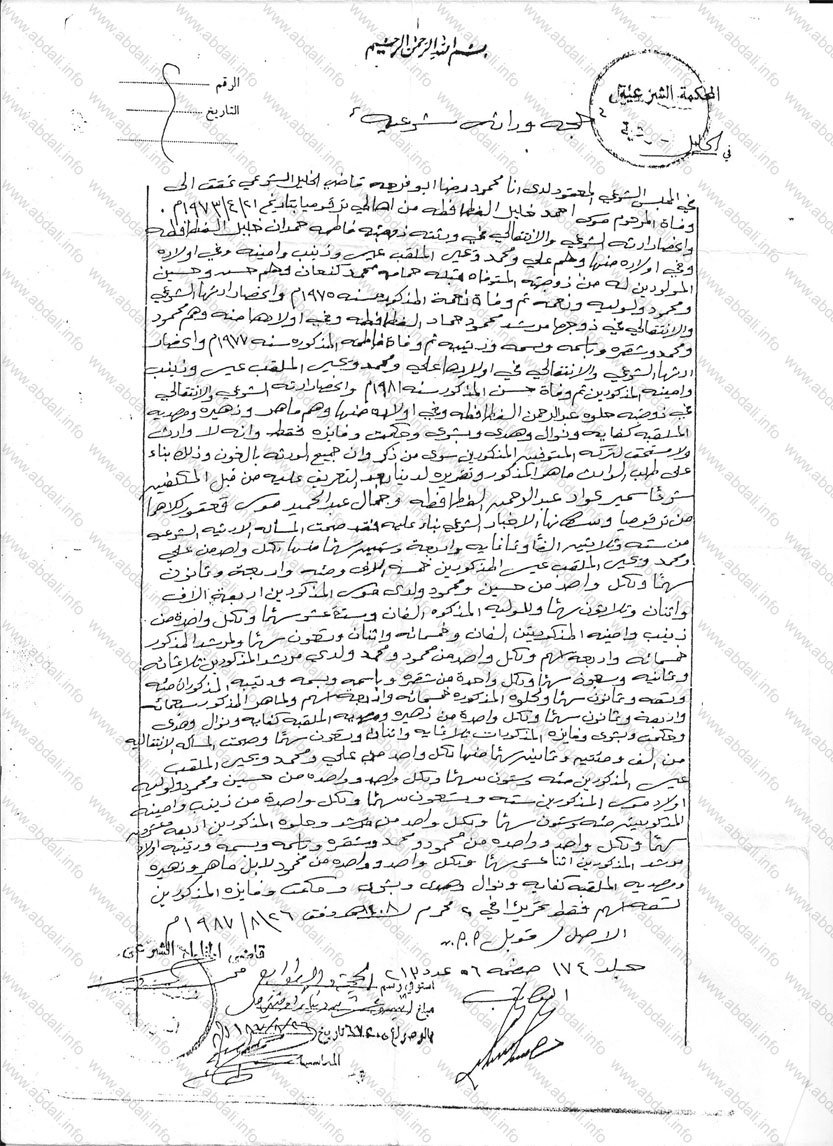 بسم الله الرحمن الرحيم
المحكمة الشرعية
في الخليل
الرقم
التاريخ
حجة وراثة شرعية
في المجلس الشرعي المعقود لدي انا محمود رضا ابو فرحه قاضي الخليل الشرعي تحقق الى
وفاة المرحوم موسى احمد خليل الفطافطه من اهالي ترقوميا بتاريخ ٢١/٤/١٩٧٣م
وانحصار ارثه الشرعي والانتقالي في ورثته زوجته فاطمه حمدان خليل الفطافطه
وفي اولاده منها وهم علي ومحمد ويحيى الملقب عيسى وزينب وامينه وفي اولاده
المولودين له من زوجته المتوفاه قبله حمامه محمد كنعان وهم حسن وحسين
ومحمود ولوليه ونعمه ثم وفاة نعمة المذكوره سنه ١٩٧٥م وانحصار ارثها الشرعي
والانتقالي في زوجها مرشد محمود حماد الفطافطه وفي اولادها منه وهم محمود
ومحمد وشقره وباسمه وبسمه ورتيبه ثم وفاة فاطمه المذكوره سنه ١٩٧٧م وانحصار
ارثها الشرعي والانتقالي في اولادها علي ومحمد ويحيى الملقب عيسى وزينب
وامينه المذكورين ثم وفاة حسن المذكور سنه ١٩٨١م وانحصار ارثه الشرعي والانتقالي
في زوجته حلوه عبدالرحمن الفطافطه وفي اولاده منها وهم ماهر وزهيره ومهديه
الملقبه كفايه ونوال وهدى وبشرى وحكمت وفايزه فقط وانه لا وارث
ولا مستحق لتركة المتوفين المذكورين سوى من ذكر وان جميع الورثه بالغون وذلك بناء
على طلب الوارث ماهر المذكور وتقريره لدينا بعد التعريف عليه من قبل المكلفين
شرعا سمير عواد عبدالرحمن الفطافطه وجمال عبدالحميد موسى قعقور كلاهما
من ترقوميا وسكانها الاخبار الشرعي بناء عليه فقد صحت المسأله الارثيه الشرعيه
من سته وثلاثين الفا وثمانمايه واربعة وستين سهما منها لكل واحد من علي
ومحمد ويحيى الملقب عيسى المذكورين خمسة الاف ومئه واربعة وثمانون
سهما ولكل واحد من حسين ومحمود ولدي موسى المذكورين اربعة الاف
واثنان وثلاثون سهما وللوليه المذكوره الفان وستة عشر سهما ولكل واحدة من
زينب وامينه المذكورتين الفان وخمسمائه واثنان وتسعون سهما ولمرشد المذكور
خمسمائه واربعة اسهم ولكل واحد من محمود ومحمد ولدي مرشد المذكورين ثلاثمائه
وثمانيه وسبعون سهما ولكل واحدة من شقره وباسمه وبسمه ورتيبه المذكورات مئه
وتسعه وثمانون سهما ولحلوه المذكوره خمسمائه واربعة اسهم ولماهر المذكور سبعمائه
واربعة وثمانون سهما ولكل واحدة من زهيره ومهديه الملقبه كفايه ونوال وهدى
وحكمت وبشرى وفايزه المذكورات ثلاثمايه واثنان وتسعون سهما وصحت المسأله الانتقاليه
من الف ومئتيه وثمانين سهما منها لكل واحد من علي ومحمد ويحيى الملقب
عيسى المذكورين مئه وستون سهما ولكل واحد وواحده من حسين ومحمود ولوليه
اولاد موسى المذكورين سته وتسعون سهما ولكل واحدة من زينب وامينه
المذكورتين مئه وستون سهما ولكل واحد من مرشد وحلوه المذكورين اربعه وعشرون
سهما ولكل واحد وواحده من محمود ومحمد وشقره وباسمه وبسمه ورتيبه اولاد
مرشد المذكورين اثنا عشر سهما ولكل واحد وواحده من ماهر وزهيره
ومهديه الملقبه كفايه ونوال وهدى وبشرى وحكمت وفايزه المذكورين
تسعه اسهم فقط تحريرا في ٢ محرم ١٤٠٨هـ وفق ٢٦/٨/١٩٨٧م
الاصل / قوبل
قاضي الخليل الشرعي
مجلد ١٧٤ صفحه ٥٦ عدد ٢١٣
استوفي رسم
مبلغ
بالوصول تاريخ
الكاتب
المحاسب
www.abdali.info